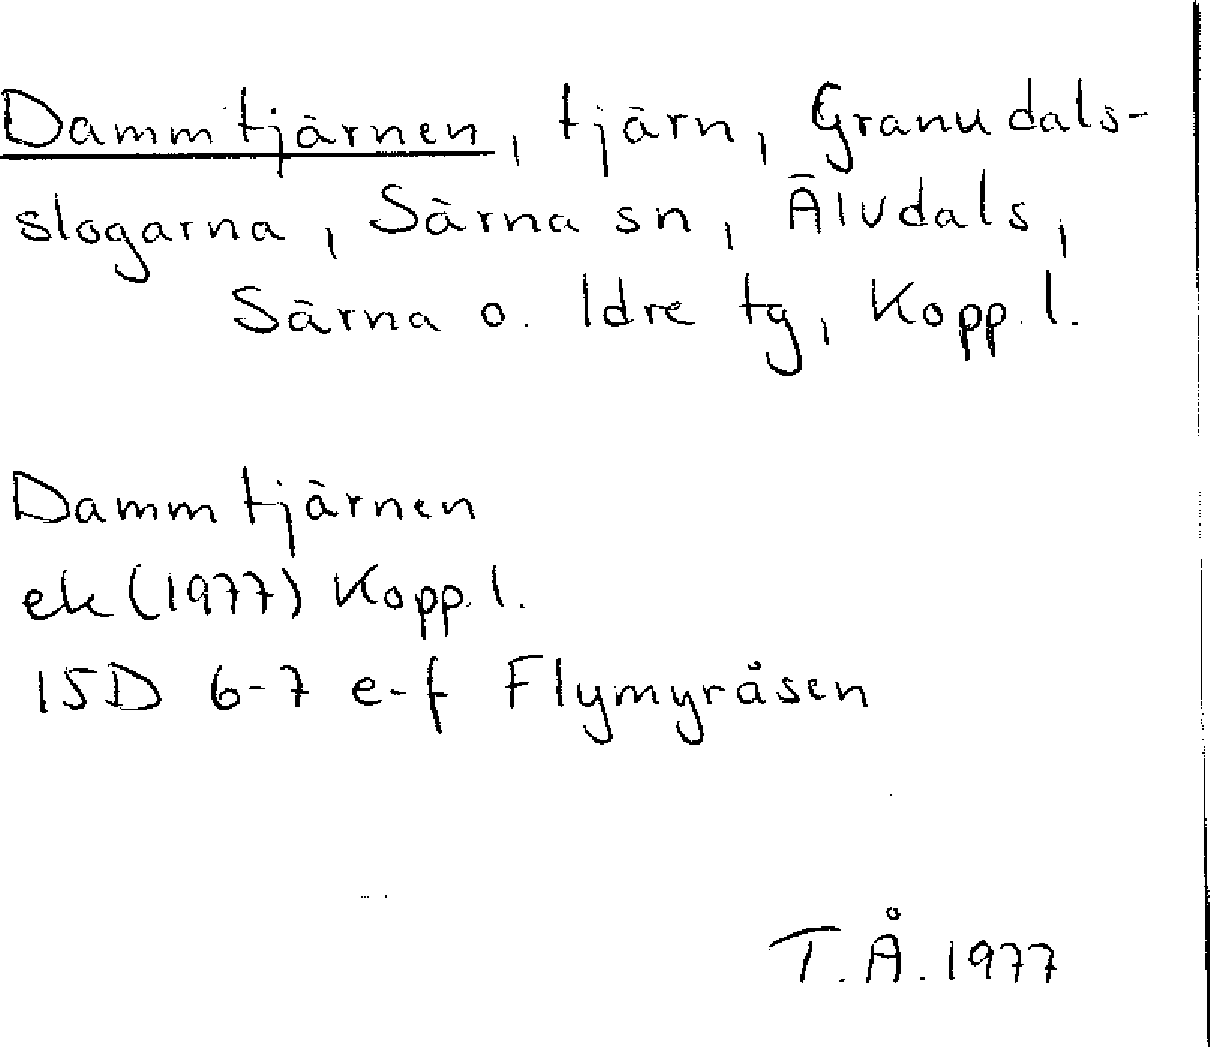 Dammtjärnen, tjärn, Granudals-
slogarna, Särna sn, Älvdals,
Särna o. Idre tg, Kopp. l.
Dammtjärnen
ek (1977) Kopp. l.
15D 6-7 e-f Flymyråsen
T.Å. 1977